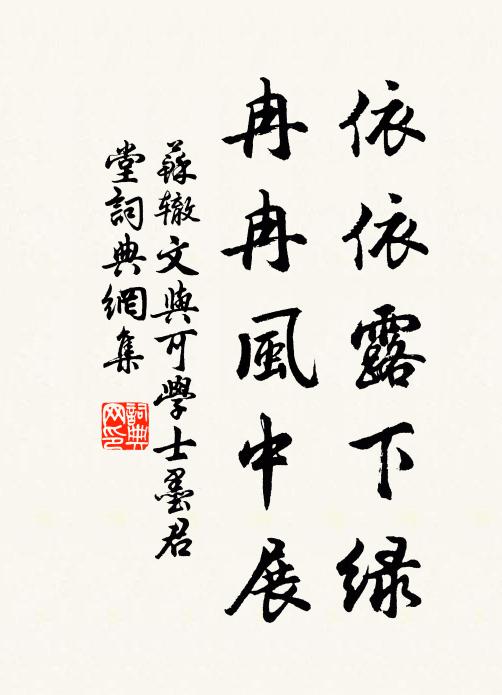 依依露下绿
冉冉風中展
蘇辙文與可學士墨君
堂詞典網集
詞典
网印